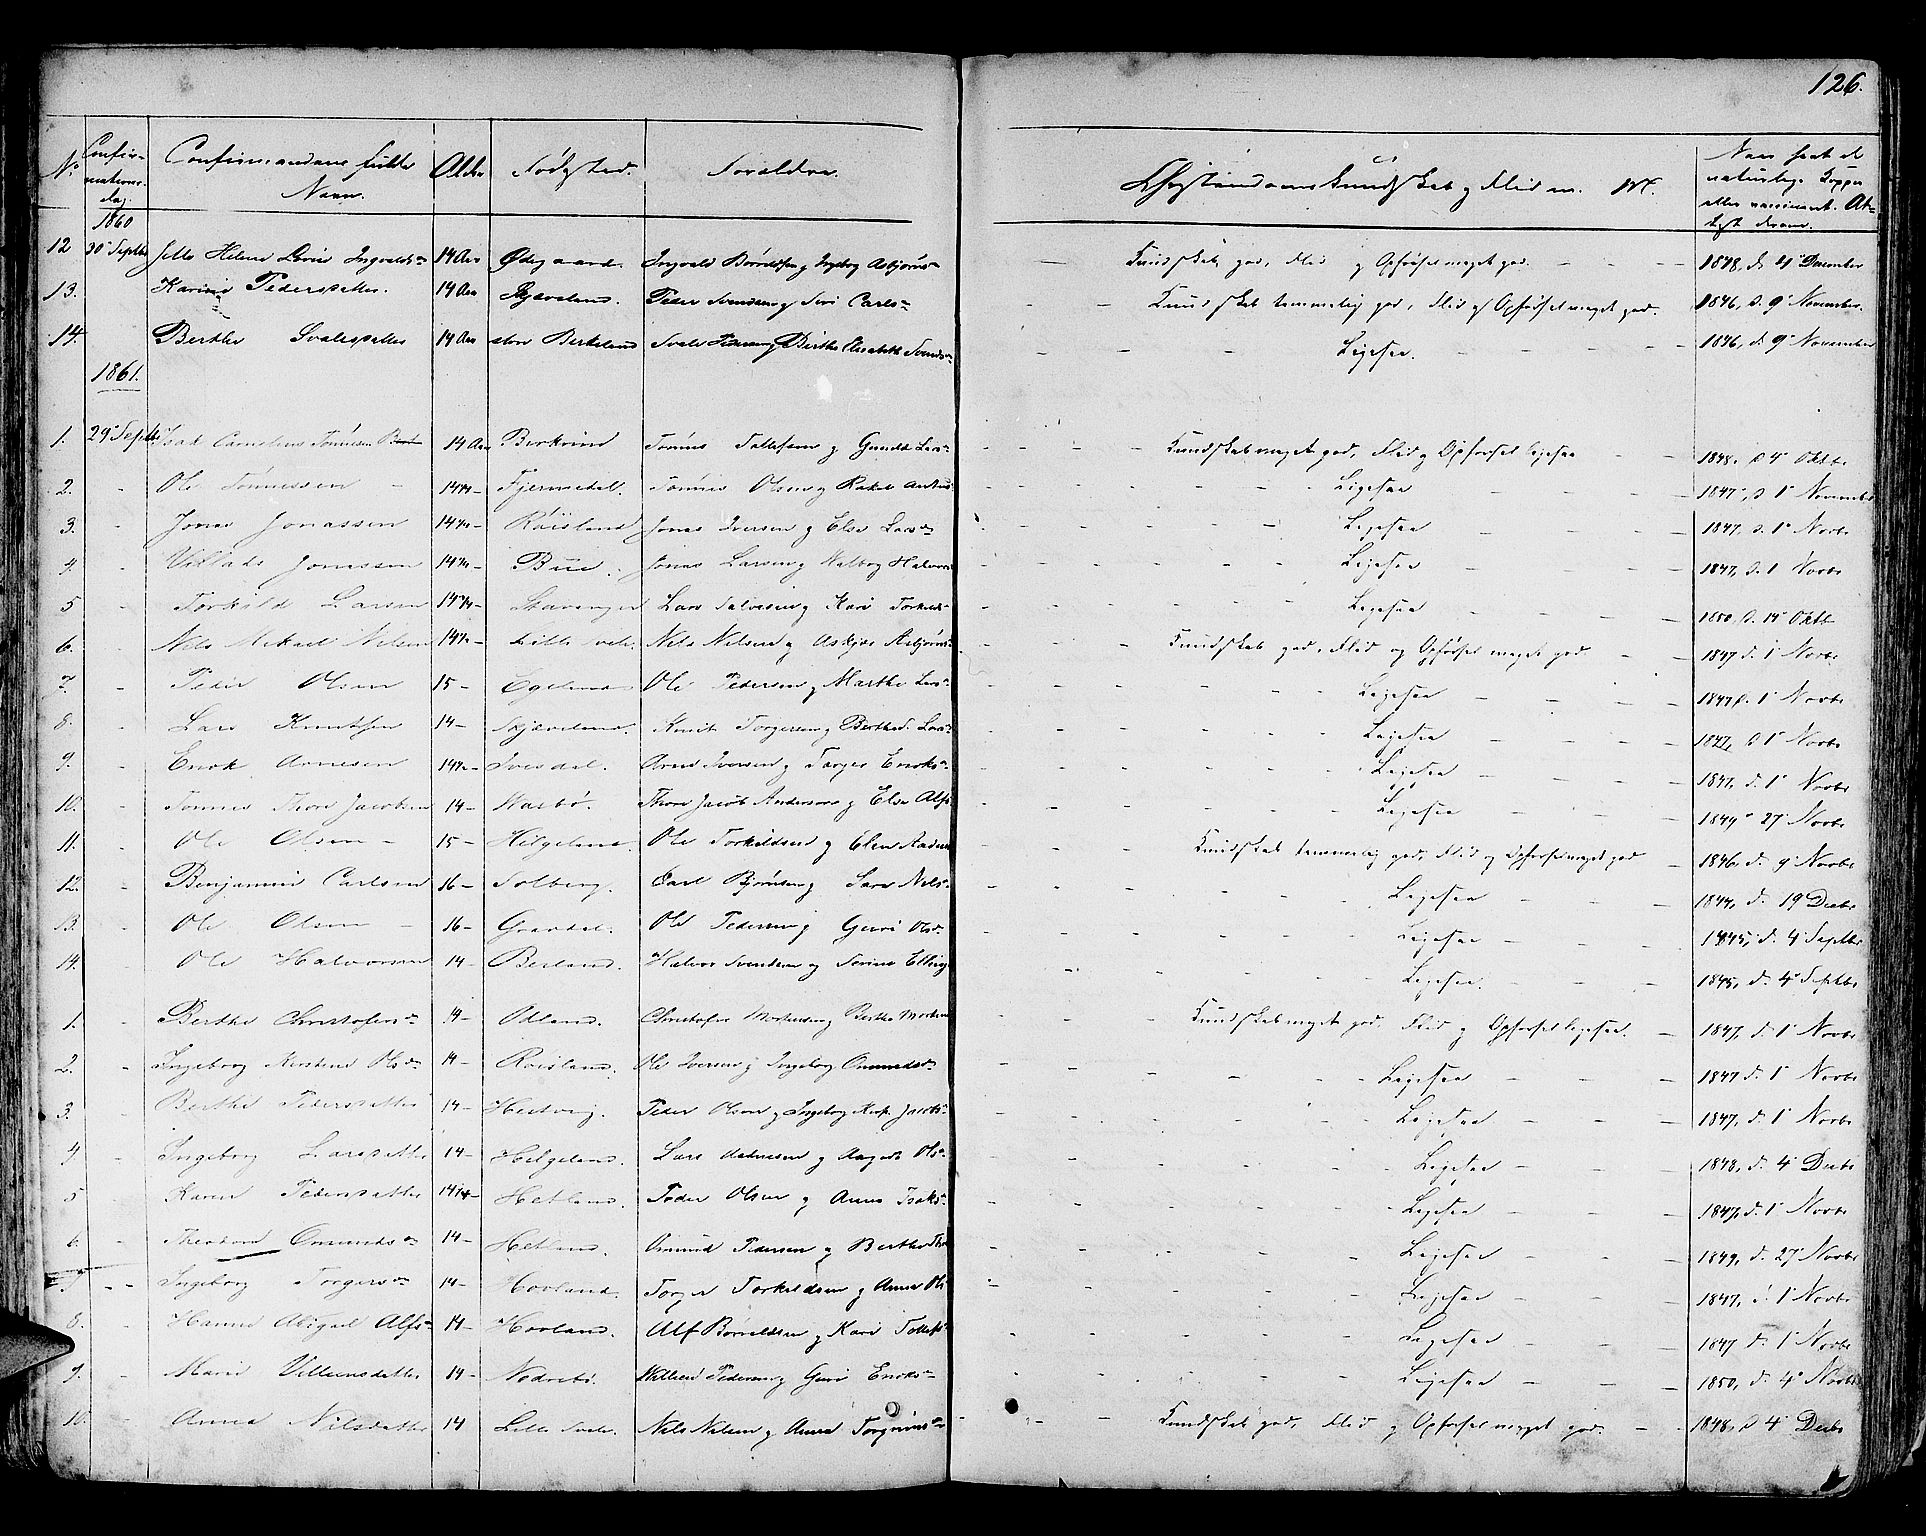 126.
No Confir-mations-dag. Confirmandens fulde Navn. Alder Fødested. Forældre. Christendomskundskab, Flid m. M. Naar havt de naturlige Kopper eller vaccineret. At-
1860
12 30 Septbr Helene Ingvalds- 14 Aar Ødegaard. Ingvald Ingeborg Asbjørns- Kundskab god, Flid og Opførsel meget god. 1848, d. 4 December
13. Karine Pedersdatter. 14 Aar Skjæveland. Peder Svendsen og Siri Carls- Kundskab temmelig god, Flid og Opførsel meget god. 1846, d. 9 November.
14. Berthe Svalesdatter 14 Aar store Birkeland Svale Pedersen og Berthe Elisabeth Svends- Ligesaa. 1846, d. 9 November
1861.
1. 29 Septbr. Isak Cornelius Tønnesen 14 Aar Birkrim Tønnes Tollefsen og Gunild Lars- Kundskab meget god, Flid og Opførsel ligesaa 1848. d 4 Oktbr
2. - Ole Tønnessen - 14 Fjermedal. Tønnes Olsen og Rakel Ligesaa 1847, d 1 November
3. - Jonas Jonassen 14 Røisland Jonas Iversen og Else Lars- Ligesaa 1847, d. 1 Novbr
4 - Villads Jonassen 14 Bue. Jonas Larsen og Halvors Ligesaa 1847, d. 1 Novbr
5 - Torkild Larsen 14 Stavanger Lars Salvesen og Kari Torkilds- Ligesaa 1850, d. 14 Oktb
6. - Nils Mikael Nilsen 14 Lille Svele. Nils Nilsen og Asbjørns Kundskab god, Flid og Opførsel meget god. 1847 d. 1 Novbr
7. - Peder Olsen 15 - Egeland Ole Pedersen og Marthe Lars- Ligesaa 1847 d. 1 Novbr
8. - Lars Knutsen 14 - Skjæveland. Knut Torgersen og Berthe S. Lars- Ligesaa 1847, d 1 Novbr
9. - Enok Arnesen 14 Ivesdal. Arne Iversen og Enoks- Ligesaa 1847, d. 1 Novbr
10. - Tønnes Thore Jacobsen 14 - Thore Jacob Andersen og Else Alfs Ligesaa 1849 27 Novbr
11. - Ole Olsen - 15 - Helgeland. Ole Torkildsen og Elen Kundskab temmelig god, Flid og Opførsel meget god - 1846, d. 9 Novbr
12. - Benjamin Carlsen 16 - Solberg. Carl Bjørnsen og Sara Nils- Ligesaa 1844, d. 19 Decbr
13. - Ole Olsen - 16 - Gravdal. Ole Pedersen og Guri Ols- Ligesaa 1845, d. 4 Septbr
14. - Ole Halvorsen 14 - Berland. Halvor Svendsen og Serine Elling Ligesaa. 1845, d. 4 Septbr
1. - Berthe Christofers- 14 - Odland. Christofer Mortensen og Berthe Morten Kundskab meget god, Flid og Opførsel ligesaa. 1847, d. 1 Novbr
2. - Ingeborg Kirstine Ols- 14 - Røisland. Ole Iversen og Ingeborg Ommunds- Ligesaa 1847 d. 1 Novbr
3. - Berthe Pedersdatter 14 - Hestvig. Peder Olsen og Ingeborg Kirst. Jacobs- Ligesaa 1847, d. 1 Novbr
4 - Ingeborg Larsdatter 14 - Helgeland. Lars og Aagot Ols- Ligesaa 1848, d. 4 Decbr
5 - Karen Pedersdatter 14 Hetland. Peder Olsen og Anne Isaks- Ligesaa 1847, d. 1 Novbr
6. - Theodora Omunds- 14 - Hetland. Omund Pedersen og Berthe Ligesaa 1849, d. 27 Novbr
7. - Ingeborg Torgers- 14 - Hovland. Torger Torkildsen og Anne Ols Ligesaa 1847, d. 1 Novbr
8. - Hanne Abigael Alfs- 14 - Hovland. Alf Børildsen og Kari Tollefs- Ligesaa 1847 d. 1 Novbr
9. - Marie Villumsdatter 14 - Nodrebø. Villum Pedersen og Guri Enoks- Ligesaa 1850, d. 4 Novbr
10. - Anna Nilsdatter 14 Lille Svele. Nils Nilsen og Anna Torgrims- Kundskab god, Flid og Opførsel meget god. 1848, d 4 Decbr